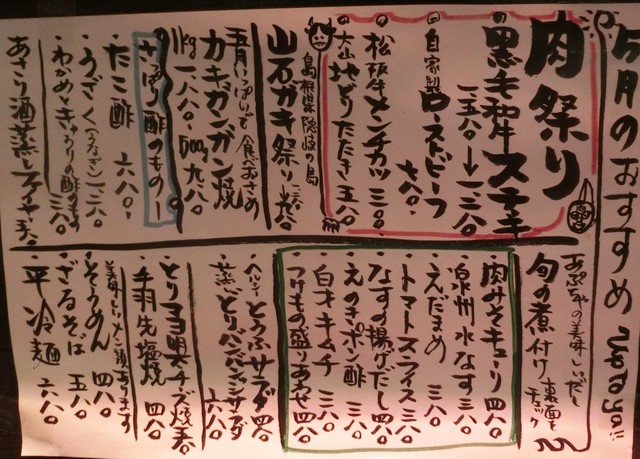 5月のおすすめ
肉祭り
黒毛和牛ステーキ
一五八〇→一三八〇
自家製ローストビーフ
七八〇
松阪牛メンチカツ 三八〇
大山地どりたたき 五八〇
島根県隠岐の島
山石ガキ祭り
五月にゆいいつ食べおさめ
カキガンガン焼
1kg 一八八〇 500g 九八〇
さっぱり酢のもの
たこ酢 六八〇
うざく(うなぎ) 一二八〇
わかめときゅうりの酢のもの 三八〇
あさり酒蒸し
旬の煮付け
裏面をチェック
肉みそキューリ 四八〇
泉州水なす 三八〇
えだまめ 三八〇
トマトスライス 三八〇
なすの揚げだし 四八〇
えのきポン酢 三八〇
白才キムチ 三八〇
つけもの盛りあわせ 四八〇
ヘルシーとうふサラダ 四八〇
蒸しどりバンバンジーサラダ
六八〇
とりマヨ明太チーズ焼 五八〇
手羽先塩焼 四八〇
美味しいメン類あります
そうめん 四八〇
ざるそば 五八〇
平冷麺 六八〇